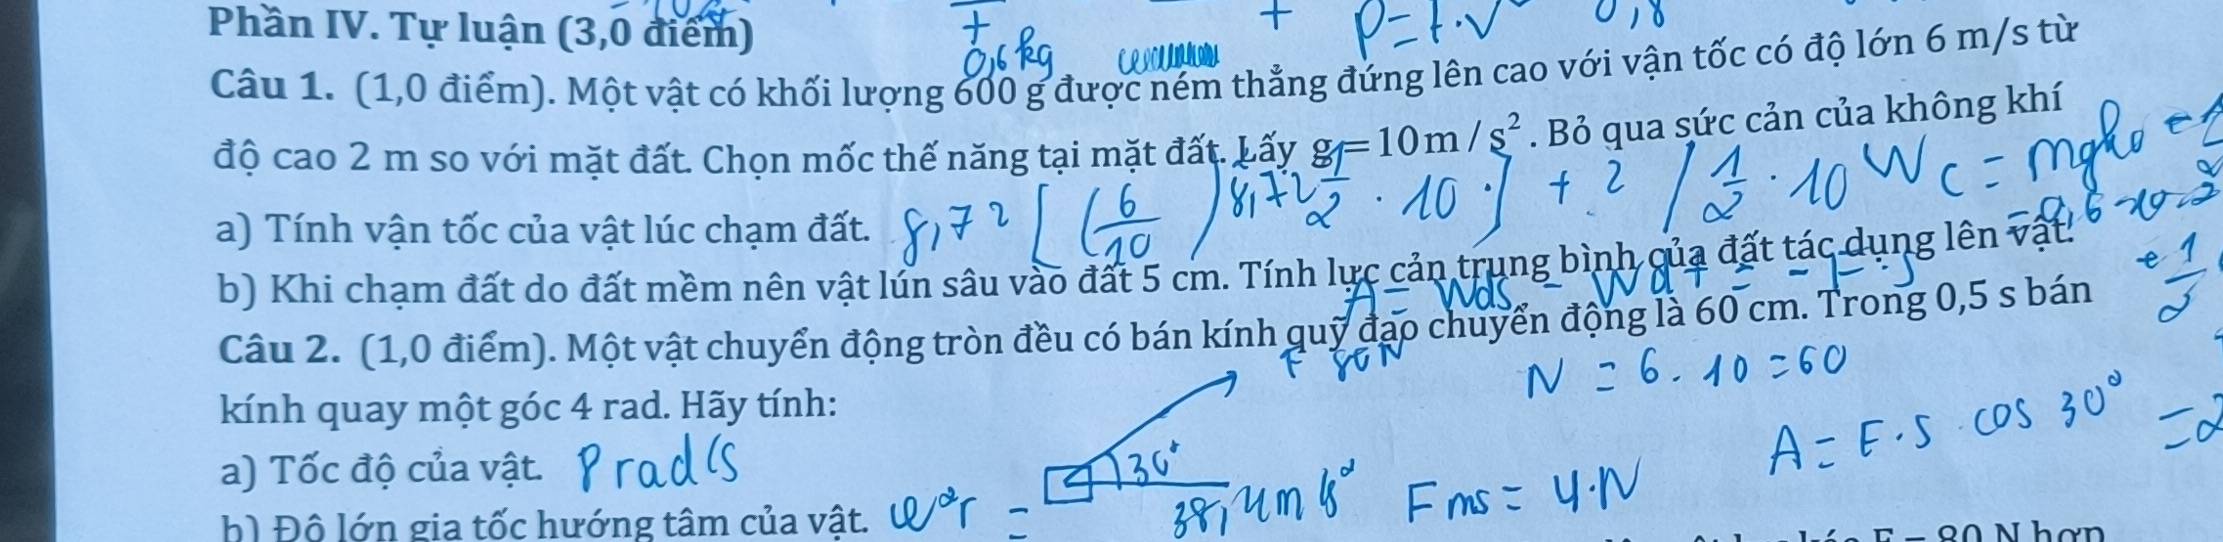 Phần IV. Tự luận (3,0 điểm)
0,6 kg
P = F.V
0,8
Câu 1. (1,0 điểm). Một vật có khối lượng 600 g được ném thẳng đứng lên cao với vận tốc có độ lớn 6 m/s từ
độ cao 2 m so với mặt đất. Chọn mốc thế năng tại mặt đất. Lấy g = 10 m / s². Bỏ qua sức cản của không khí
a) Tính vận tốc của vật lúc chạm đất. 8,72
b) Khi chạm đất do đất mềm nên vật lún sâu vào đất 5 cm. Tính lực cản trung bình của đất tác dụng lên vật.
Câu 2. (1,0 điểm). Một vật chuyển động tròn đều có bán kính quỹ đạo chuyển động là 60 cm. Trong 0,5 s bán
F 80N
N = 6.10 = 60
kính quay một góc 4 rad. Hãy tính:
A = F.S.cos 30°
a) Tốc độ của vật. 8 rad/s
30°
b) Độ lớn gia tốc hướng tâm của vật. ω²r =
38,4 m/s²
F ms = μ.N
F = 80 N hợp